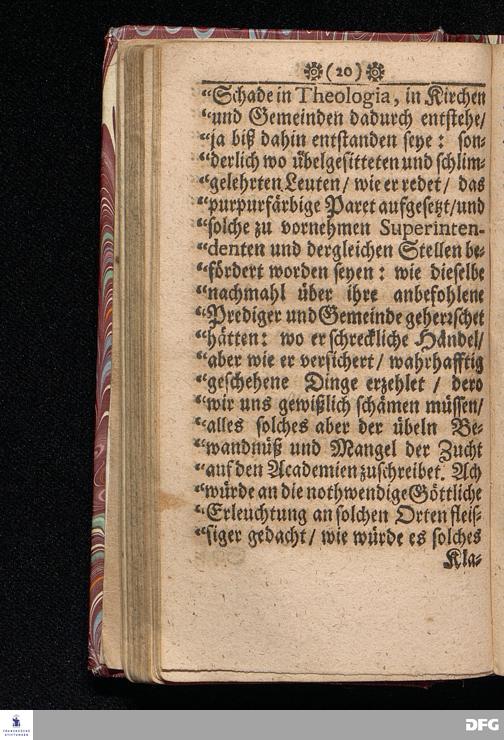 ❋ (20) ❋
“Schade in Theologia, in Kirchen
“und Gemeinden dadurch entstehe/
“ja biß dahin entstanden seye: son-
“derlich wo übelgesitteten und schlim-
“gelehrten Leuten/ wie er redet/ das
“purpurfärbige Paret aufgesetzt/und
“solche zu vornehmen Superinten-
“denten und dergleichen Stellen be-
“fördert worden seyen: wie dieselbe
“nachmahl über ihre anbefohlene
“Prediger und Gemeinde geherrschet
“hätten: wo er schreckliche Händel/
“aber wie er versichert/ wahrhafftig
“geschehene Dinge erzehlet / dero
“wir uns gewißlich schämen müssen/
“alles solches aber der übeln Be-
“wandnüß und Mangel der Zucht
“auf den Academien zuschreibet. Ach
“würde an die nothwendige Göttliche
“Erleuchtung an solchen Orten fleis-
“siger gedacht/ wie würde es solches
Kla-
FRANCKESCHE
STIFTUNGEN
DFG